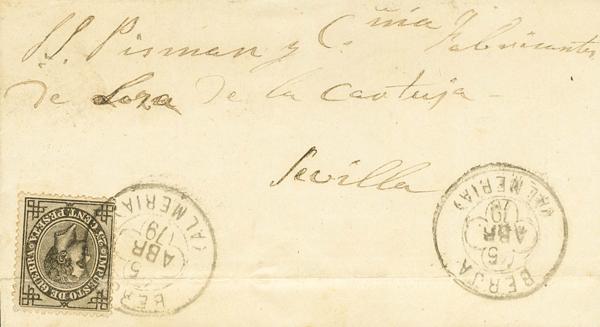 SS. Pisman y C.ñia Fabricantes
de Loza de la Cartuja
Sevilla
IMPUESTO DE GUERRA
25 CENT PESETA
BER
5
ABR
79
(ALMERIA)
BERJA
5
ABR
79
(ALMERIA)